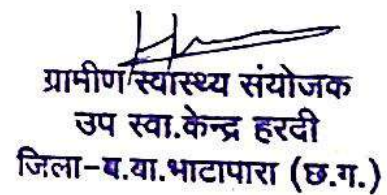 ग्रामीण स्वास्थ्य संयोजक
उप स्वा.केन्द्र हरदी
जिला-ब.या.भाटापारा (छ.ग.)